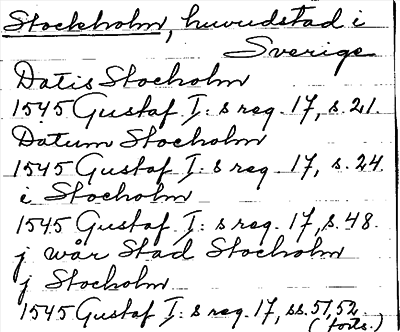 Stockholm, huvudstad i
Sverige
Datis Stocholm
1545 Gustaf I: s reg. 17, s. 21.
Datum Stocholm
1545 Gustaf I: s reg. 17, s. 24.
i Stocholm
1545 Gustaf I: s reg. 17, s. 48.
j wår Stad Stocholm
j Stocholm
1545 Gustaf I: s reg. 17, ss. 51, 52.
(forts.)